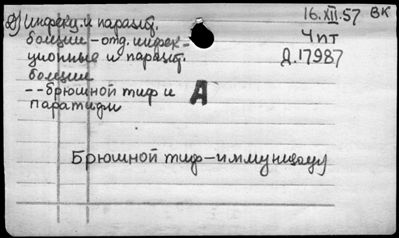 2) Инфекц. и паразит.
болезни – отд. инфек-
ционные и паразит.
болезни
--брюшной тиф и
паратифы
А
16.XII.57 ВК
Чпт
Д.17987
Брюшной тиф – иммунизац